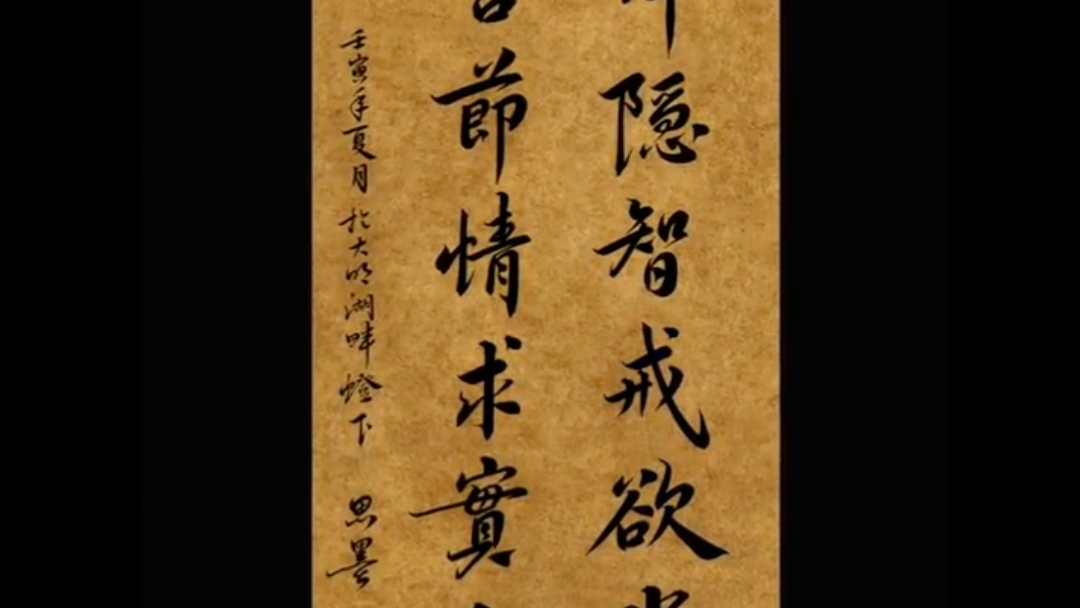 隱智戒欲
節情求實
壬寅年夏月於大明湖畔燈下
思墨